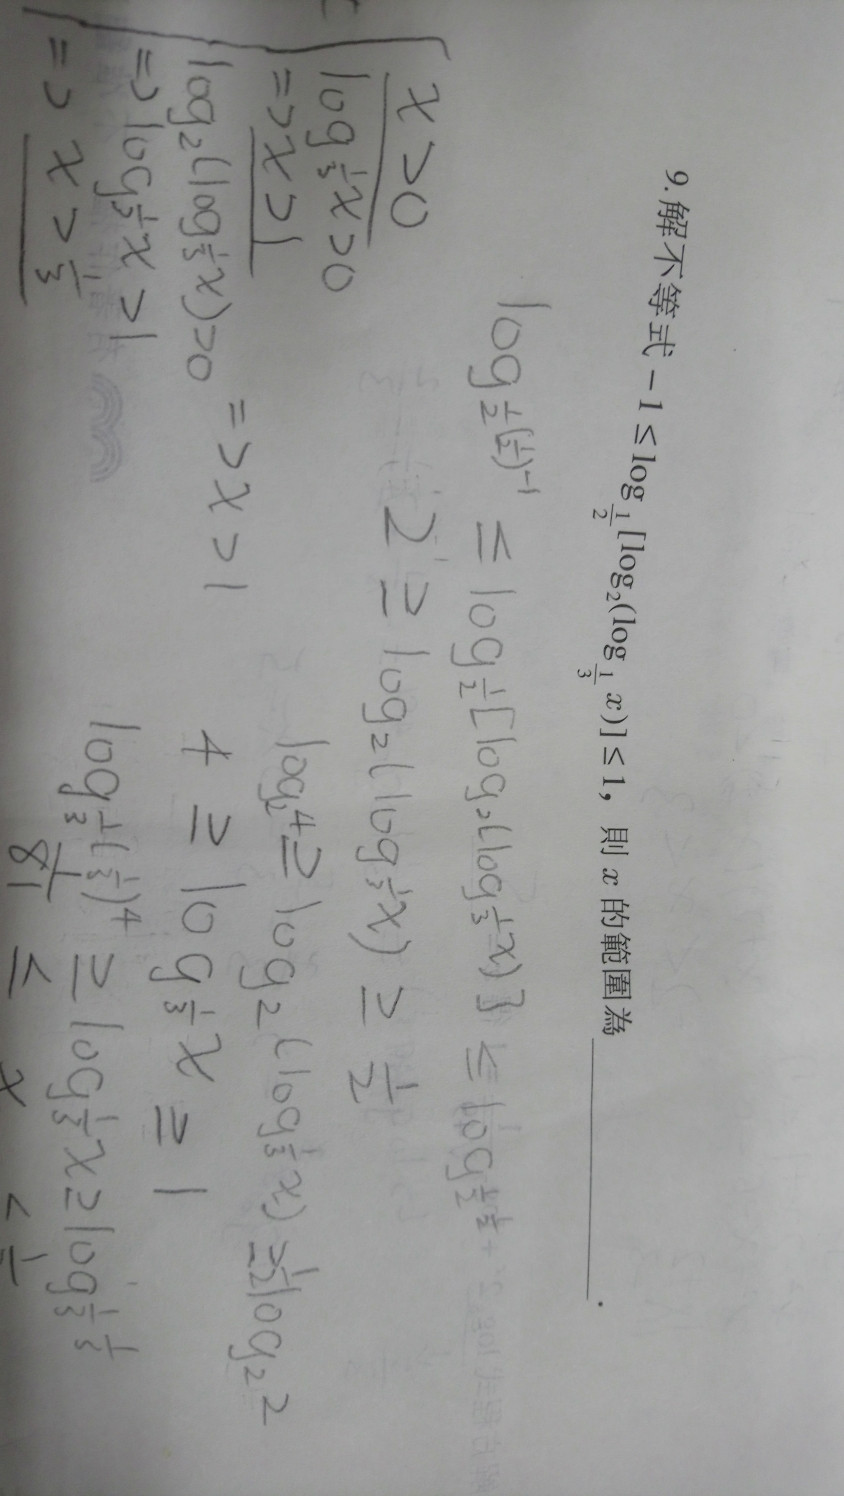 9. 解不等式 -1 ≤ log_{1/2}[log_2(log_{1/3} x)] ≤ 1, 則 x 的範圍為 ______.
log_{1/2}(1/2)^{-1} ≤ log_{1/2}[log_2(log_{1/3} x)] ≤ log_{1/2} 1/2
2 ≥ log_2(log_{1/3} x) ≥ 1/2
log_2 4 ≥ log_2(log_{1/3} x) ≥ 1/2 log_2 2
4 ≥ log_{1/3} x ≥ 1
log_{1/3}(1/3)^4 ≥ log_{1/3} x ≥ log_{1/3} 1/3
1/81 ≤ x <
x > 0
log_{1/3} x > 0
=> x > 1
log_2(log_{1/3} x) > 0 => x > 1
=> log_{1/3} x > 1
=> x > 1/3